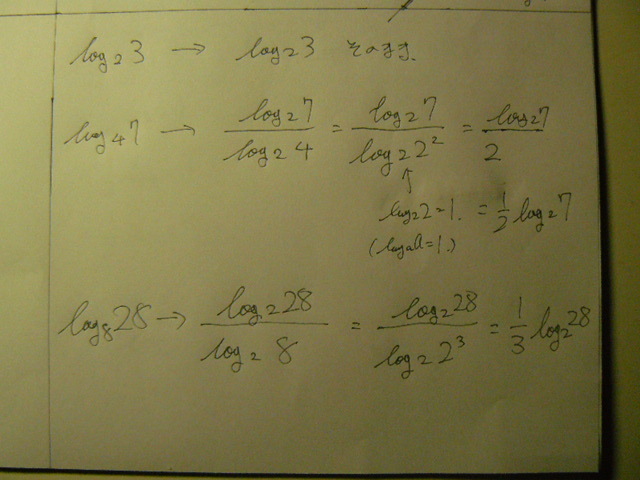 log₂3 → log₂3 そのまま.
log₄7 → log₂7/log₂4 = log₂7/log₂2² = log₂7/2
↑
log₂2=1. = 1/2 log₂7
(logₐa=1.)
log₈28 → log₂28/log₂8 = log₂28/log₂2³ = 1/3 log₂28